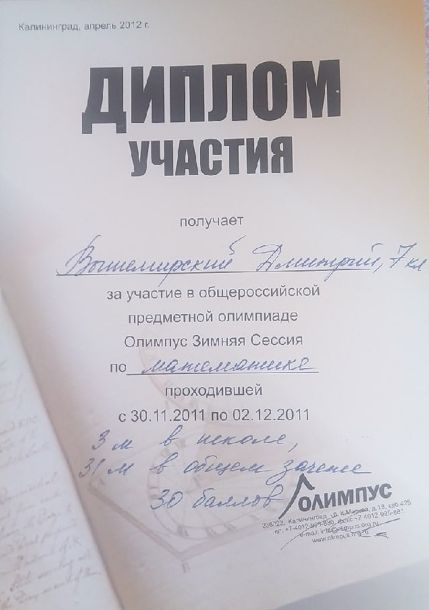 Калининград, апрель 2012 г.
ДИПЛОМ
УЧАСТИЯ
получает
Вышемирский Дмитрий, 7 кл
за участие в общероссийской
предметной олимпиаде
Олимпус Зимняя Сессия
по математике
проходившей
с 30.11.2011 по 02.12.2011
3 м в школе,
31 м в общем зачёте
30 баллов
ОЛИМПУС
Калининград